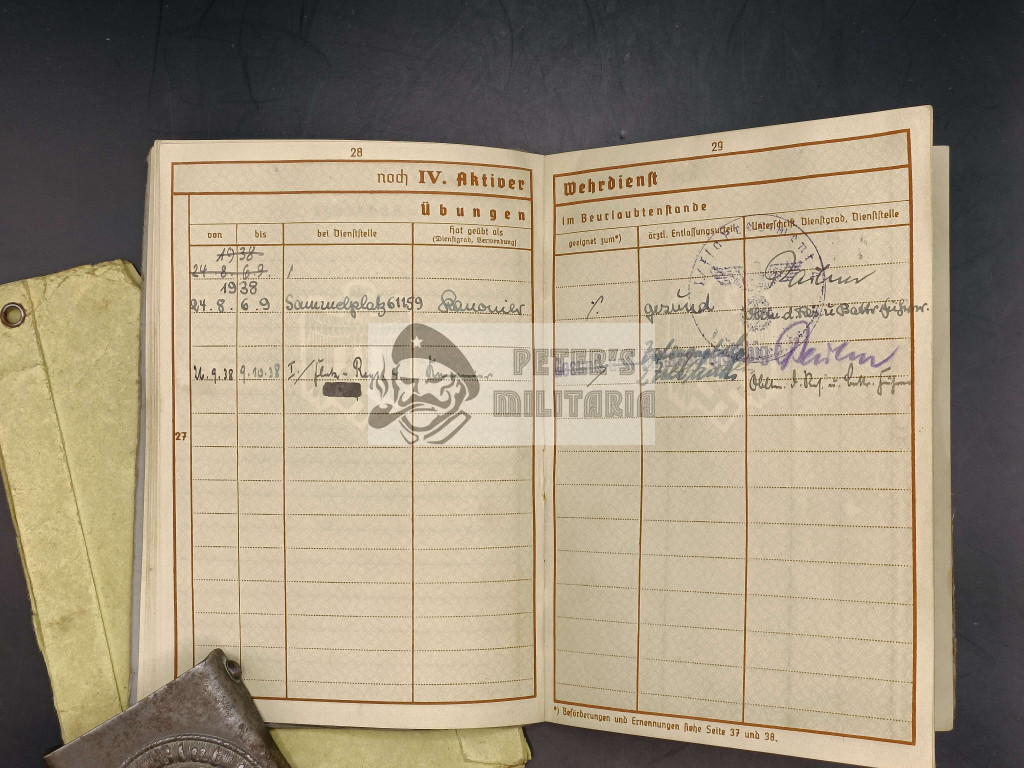 28
noch IV. Aktiver
Übungen
von bis bei Dienststelle hat geübt als
(Dienstgrad, Verwendung)
1938
24. 8. 6. 9. /
1938
24. 8. 6. 9 Sammelplatz 61159 Kanonier
26. 9. 38 9. 10. 38 I./
27
29
Wehrdienst
im Beurlaubtenstande
geeignet zum*) ärztl. Entlassungsurteil Unterschrift, Dienstgrad, Dienststelle
gesund
Obltn. d. Res. u. Battr. Führer.
Obltn. d. Res. u. Battr. Führer
*) Beförderungen und Ernennungen siehe Seite 37 und 38.
PETER'S
MILITARIA